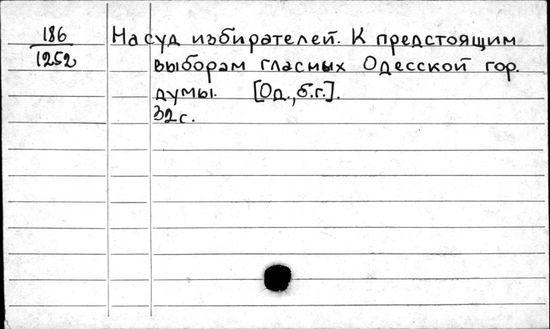 186 На суд избирателей. К предстоящим
1252 выборам гласных Одесской гор.
думы. [Од., б.г.].
32с.